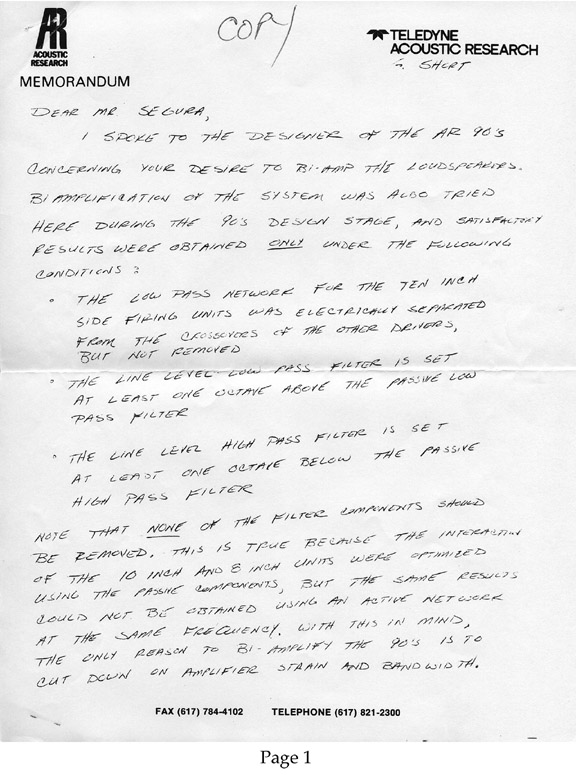 AR
ACOUSTIC
RESEARCH
MEMORANDUM
COPY
TELEDYNE
ACOUSTIC RESEARCH
G. SHORT
DEAR MR SEGURA,
I SPOKE TO THE DESIGNER OF THE AR 90'S
CONCERNING YOUR DESIRE TO BI-AMP THE LOUDSPEAKERS.
BIAMPLIFICATION OF THE SYSTEM WAS ALSO TRIED
HERE DURING THE 90'S DESIGN STAGE, AND SATISFACTORY
RESULTS WERE OBTAINED ONLY UNDER THE FOLLOWING
CONDITIONS:
• THE LOW PASS NETWORK FOR THE TEN INCH
SIDE FIRING UNITS WAS ELECTRICALLY SEPARATED
FROM THE CROSSOVERS OF THE OTHER DRIVERS,
BUT NOT REMOVED
• THE LINE LEVEL LOW PASS FILTER IS SET
AT LEAST ONE OCTAVE ABOVE THE PASSIVE LOW
PASS FILTER
• THE LINE LEVEL HIGH PASS FILTER IS SET
AT LEAST ONE OCTAVE BELOW THE PASSIVE
HIGH PASS FILTER
NOTE THAT NONE OF THE FILTER COMPONENTS SHOULD
BE REMOVED. THIS IS TRUE BECAUSE THE INTERACTION
OF THE 10 INCH AND 8 INCH UNITS WERE OPTIMIZED
USING THE PASSIVE COMPONENTS, BUT THE SAME RESULTS
COULD NOT BE OBTAINED USING AN ACTIVE NETWORK
AT THE SAME FREQUENCY. WITH THIS IN MIND,
THE ONLY REASON TO BI-AMPLIFY THE 90'S IS TO
CUT DOWN ON AMPLIFIER STRAIN AND BANDWIDTH.
FAX (617) 784-4102 TELEPHONE (617) 821-2300
Page 1